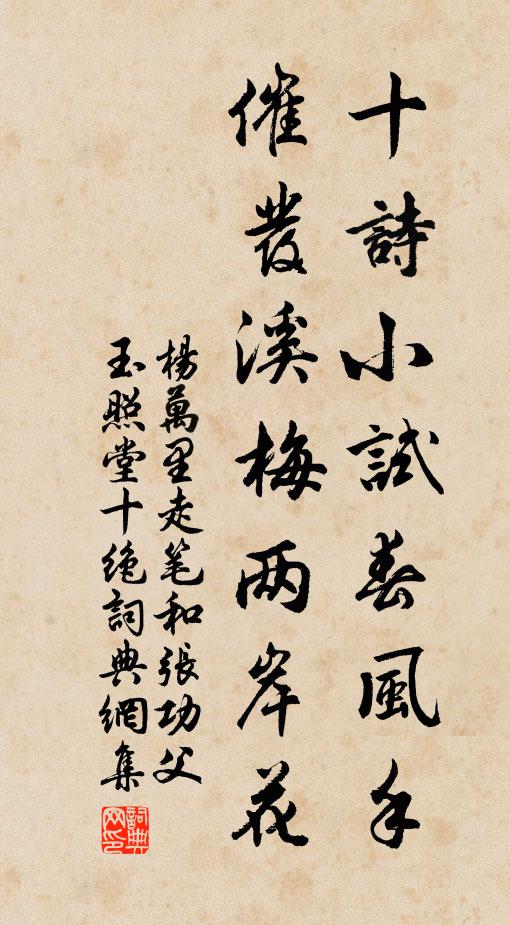 十詩小試春風手
催發溪梅两岸花
楊萬里走笔和張功父
玉照堂十絶詞典網集
詞典网印